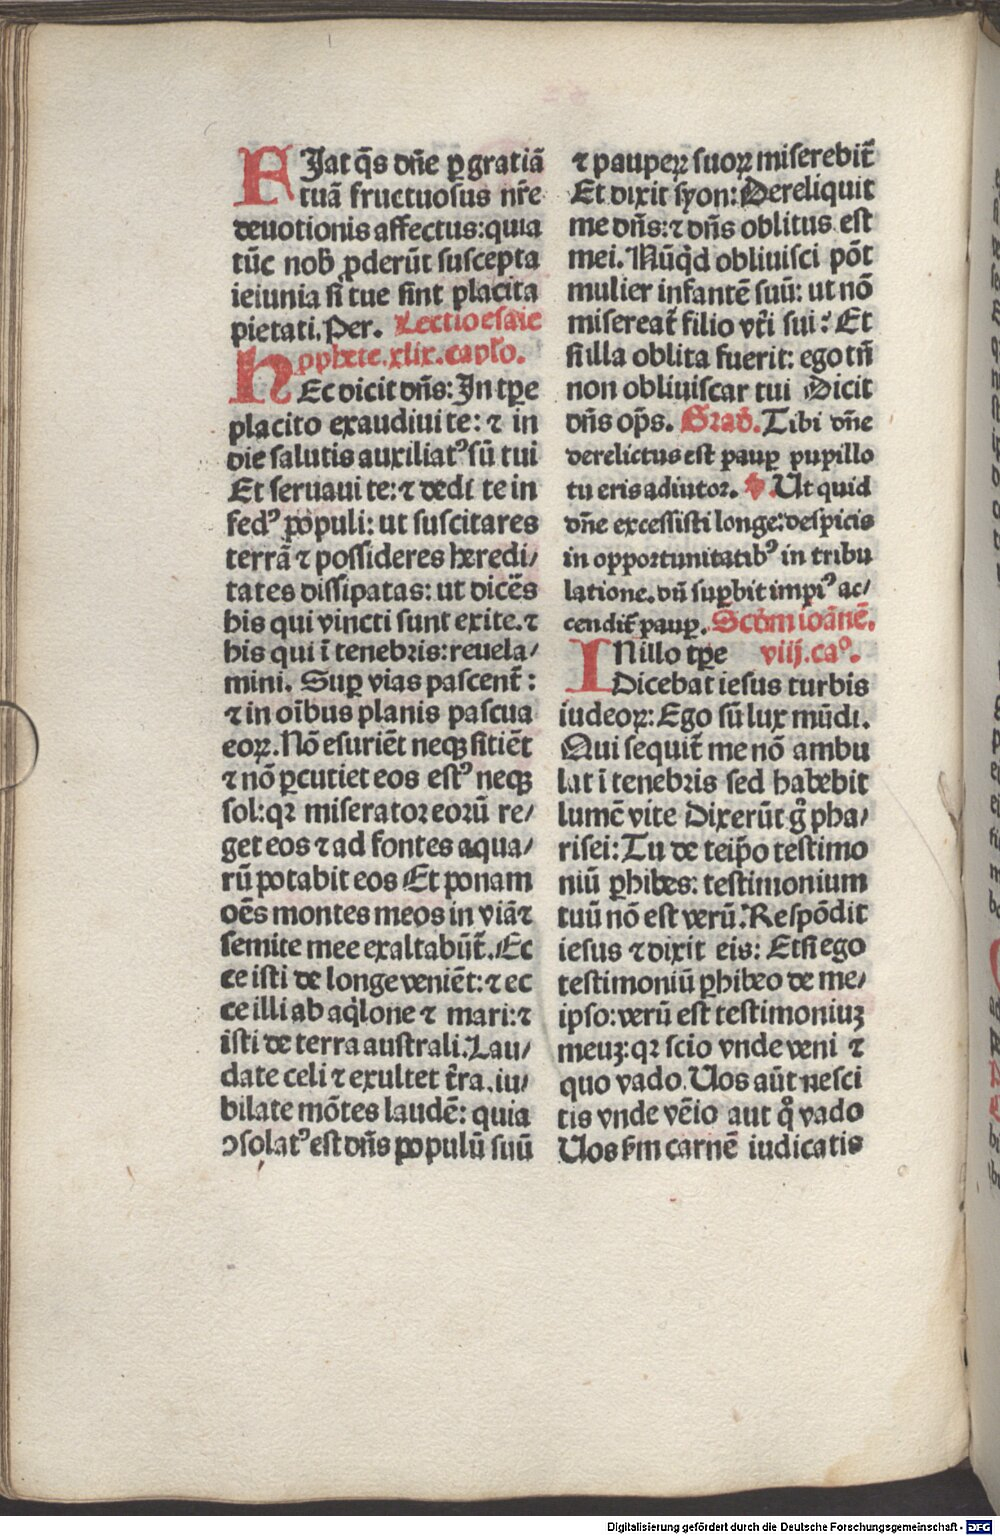 FIat q̄s dn̄e ꝑ gratiā
tuā fructuosus nr̄e
deuotionis affectus: quia
tūc nob̄ ꝓderūt suscepta
ieiunia si tue sint placita
pietati. Per. Lectio esaie
ꝓphete. xlix. capl̄o.
HEc dicit dn̄s: In tp̄e
placito exaudiui te: ⁊ in
die salutis auxiliatꝰ sū tui
Et seruaui te: ⁊ dedi te in
fedꝰ populi: ut suscitares
terrā ⁊ possideres heredi/
tates dissipatas: ut dicēs
his qui vincti sunt exite. ⁊
his qui ī tenebris: reuela/
mini. Suꝑ vias pascent̄:
⁊ in oībus planis pascua
eoꝝ. Nō esuriēt neqꝫ sitiēt
⁊ nō ꝑcutiet eos estꝰ neqꝫ
sol: qꝛ miserator eorū re/
get eos ⁊ ad fontes aqua/
rū potabit eos Et ponam
oēs montes meos in viā ⁊
semite mee exaltabūt̄. Ec
ce isti de longe veniēt: ⁊ ec
ce illi ab aq̇lone ⁊ mari: ⁊
isti de terra australi. Lau/
date celi ⁊ exultet t̄ra. iu/
bilate mōtes laudē: quia
ꝯsolatꝰ est dn̄s populū suū
⁊ pauperꝝ suoꝝ miserebit̄
Et dixit syon: Dereliquit
me dn̄s: ⁊ dn̄s oblitus est
mei. Nūq̇d obliuisci pōt
mulier infantē suū: ut nō
misereat̄ filio vt̄i sui: Et
si illa oblita fuerit: ego tn̄
non obliuiscar tui Dicit
dn̄s op̄s. Grad̄. Tibi dn̄e
derelictus est pauꝑ pupillo
tu eris adiutor. ℣. Ut quid
dn̄e excessisti longe: despicis
in opportunitatibꝰ in tribu
latione. dū suꝑbit impiꝰ ac/
cendit̄ pauꝑ. Scd̄m ioānē.
IN illo tp̄e viij. caº.
Dicebat iesus turbis
iudeoꝝ: Ego sū lux mūdi.
Qui sequit̄ me nō ambu
lat ī tenebris sed habebit
lumē vite Dixerūt g̊ pha/
risei: Tu de teip̄o testimo
niū ꝑhibes: testimonium
tuū nō est verū. Respōdit
iesus ⁊ dixit eis: Et si ego
testimoniū ꝑhibeo de me/
ipso: verū est testimoniuꝫ
meuꝫ: qꝛ scio vnde veni ⁊
quo vado. Uos aūt nesci
tis vnde vēio aut q̊ vado
Uos sm̄ carnē iudicatis
Digitalisierung gefördert durch die Deutsche Forschungsgemeinschaft - DFG